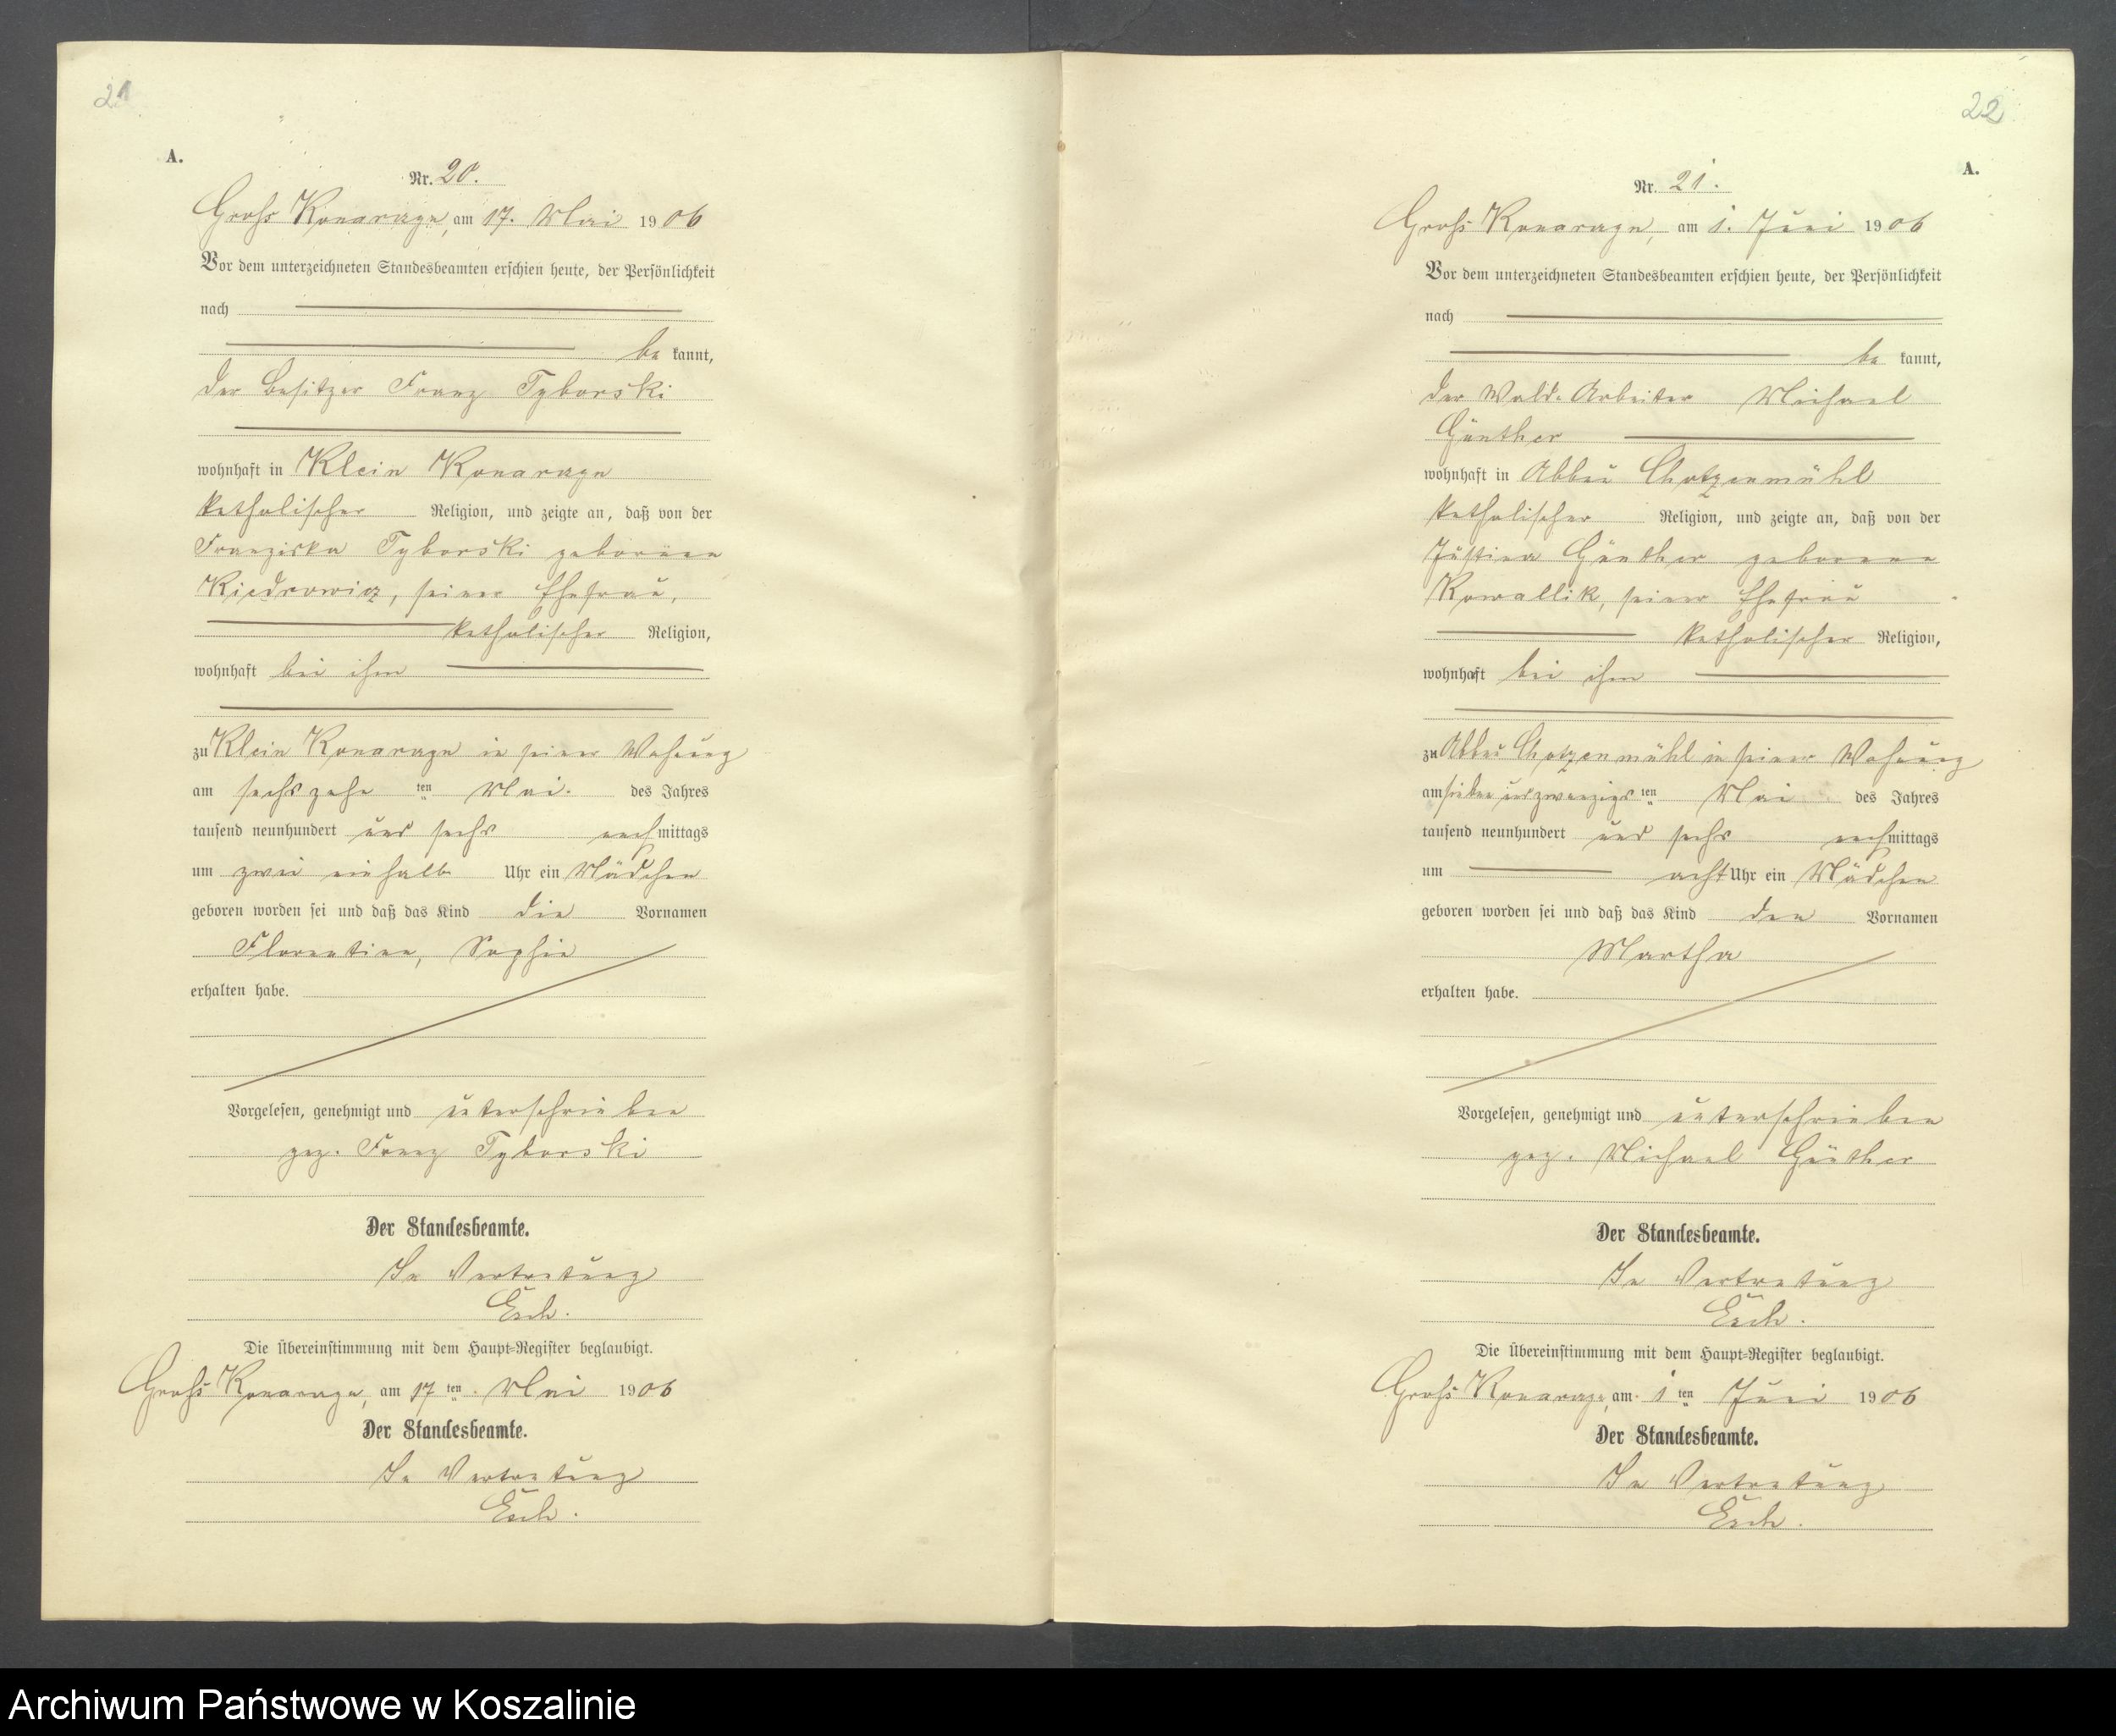 21
A.
Nr. 20.
Groß Konarzyn, am 17. Mai 1906
Vor dem unterzeichneten Standesbeamten erschien heute, der Persönlichkeit
nach
be kannt,
der Besitzer Franz Tyborski
wohnhaft in Klein Konarzyn
katholischer Religion, und zeigte an, daß von der
Franziska Tyborski geborenen
Kiedrowicz, seiner Ehefrau,
katholischer Religion,
wohnhaft bei ihm
zu Klein Konarzyn in seiner Wohnung
am sechszehn ten Mai des Jahres
tausend neunhundert und sechs nachmittags
um zwei einhalb Uhr ein Mädchen
geboren worden sei und daß das Kind die Vornamen
Florentine, Sophie
erhalten habe.
Vorgelesen, genehmigt und unterschrieben
gez. Franz Tyborski
Der Standesbeamte.
In Vertretung
Esch.
Die Übereinstimmung mit dem Haupt-Register beglaubigt.
Groß Konarzyn, am 17 ten Mai 1906
Der Standesbeamte.
In Vertretung
Esch.
22
A.
Nr. 21.
Groß Konarzyn, am 1. Juni 1906
Vor dem unterzeichneten Standesbeamten erschien heute, der Persönlichkeit
nach
be kannt,
der Wald-Arbeiter Michael
Günther
wohnhaft in Abbau Chotzenmühl
katholischer Religion, und zeigte an, daß von der
Justina Günther geborene
Kowallik, seiner Ehefrau
katholischer Religion,
wohnhaft bei ihm
zu Abbau Chotzenmühl in seiner Wohnung
am siebenundzwanzigs ten Mai des Jahres
tausend neunhundert und sechs nachmittags
um acht Uhr ein Mädchen
geboren worden sei und daß das Kind den Vornamen
Martha
erhalten habe.
Vorgelesen, genehmigt und unterschrieben
gez. Michael Günther
Der Standesbeamte.
In Vertretung
Esch.
Die Übereinstimmung mit dem Haupt-Register beglaubigt.
Groß Konarzyn, am 1 ten Juni 1906
Der Standesbeamte.
In Vertretung
Esch.
Archiwum Państwowe w Koszalinie